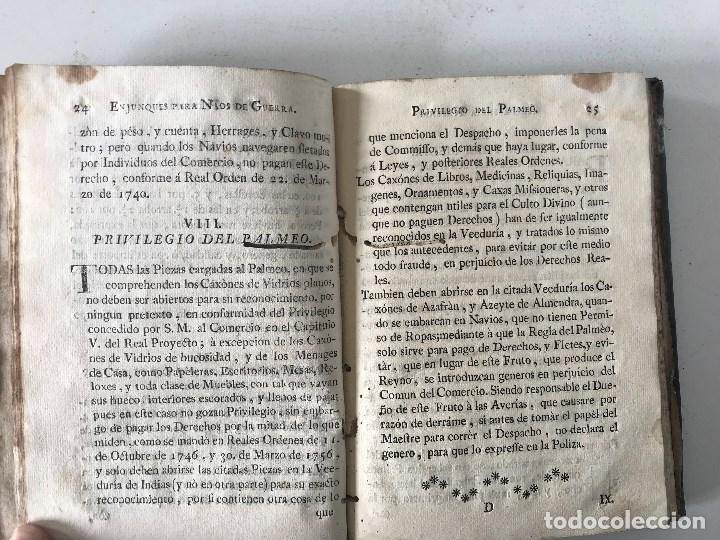 24 ENJUNQUES PARA NÀOS DE GUERRA.
zòn de péso, y cuenta, Herrages, y Clavo
tro; pero quando los Navios navegaren fletados
por Individuos del Comercio, no pagan este De-
recho, conforme á Real Orden de 22. de Mar-
zo de 1740.
VIII.
PRIVILEGIO DEL PALMEO.
TODAS las Piezas cargadas al Palmeo, en que se
comprehenden los Caxònes de Vidrios planos,
no deben ser abiertos para su reconocimiento, por
ningun pretexto, en conformidad del Privilegio
concedido por S. M. al Comercio en el Capitulo
V. del Real Proyecto; à excepcion de los Caxo-
nes de Vidrios de bucosidad, y de los Menages
de Casa, como Papeleras, Escritorios, Mesas, Re-
loxes, y toda clase de Muebles, con tal que vayan
sus hueco. interiores escorados, y llenos de paja;
pues en este caso no gozan Privilegio, sin embar-
go de pagar los Derechos por la mitad de lo que
miden, como se mandò en Reales Ordenes de 11.
de Octubre de 1746, y 30. de Marzo de 1756,
y solo deben abrirse las citadas Piezas en la Vee-
duría de Indias (y no en otra parte) para su exacto
reconocimiento, por si contienen otra cosa de lo
que
PRIVILEGIO DEL PALMEO. 25
que menciona el Despacho, imponerles la pena
de Commisso, y demás que haya lugar, conforme
á Leyes, y posteriores Reales Ordenes.
Los Caxónes de Libros, Medicinas, Reliquias, Ima-
genes, Ornamentos, y Caxas Misioneras, y otros
que contengan utiles para el Culto Divino (aun-
que no paguen Derechos) han de ser igualmente
reconocidos en la Veeduría, y tratados lo mismo
que los antecedentes, para evitar por este medio
todo fraude, en perjuicio de los Derechos Rea-
les.
Tambien deben abrirse en la citada Veeduría los Ca-
xónes de Azafràn, y Azeyte de Almendra, quan-
do se embarcan en Navios, que no tienen Permi-
so de Ropas; mediante à que la Regla del Palméo,
solo sirve para pago de Derechos, y Fletes, y evi-
tár, que en lugar de este Fruto, que produce el
Reyno, se introduzcan generos en perjuicio del
Comun del Comercio. Siendo responsable el Due-
ño de este Fruto à las Averías, que causare por
razón de derráme, si antes de tomar el papél del
Maestre para corrèr el Despacho, no declara el
genero, para que lo expresse en la Poliza.
D
IX.
todocoleccion
todocoleccion.net